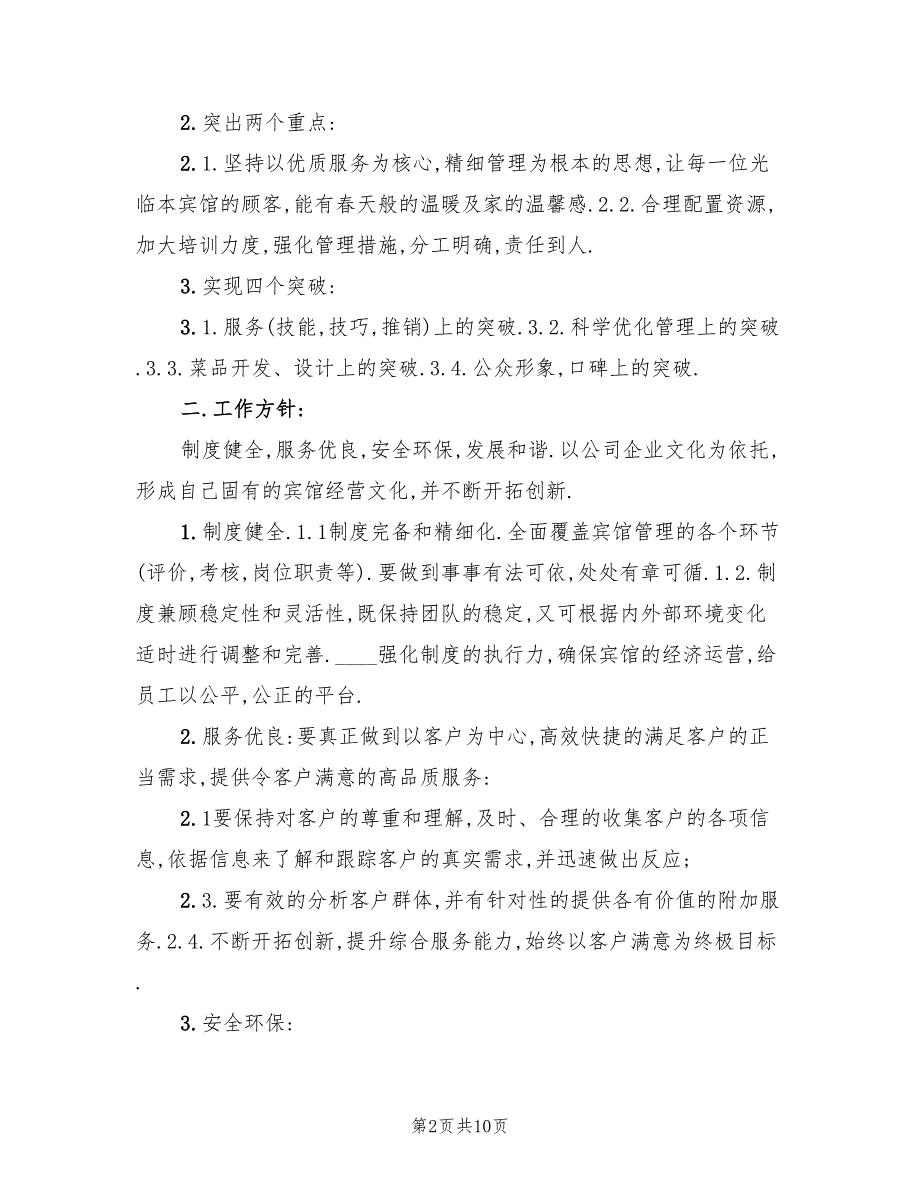 2.突出两个重点:
2.1.坚持以优质服务为核心,精细管理为根本的思想,让每一位光
临本宾馆的顾客,能有春天般的温暖及家的温馨感.2.2.合理配置资源,
加大培训力度,强化管理措施,分工明确,责任到人.
3.实现四个突破:
3.1.服务(技能,技巧,推销)上的突破.3.2.科学优化管理上的突破
.3.3.菜品开发、设计上的突破.3.4.公众形象,口碑上的突破.
二.工作方针:
制度健全,服务优良,安全环保,发展和谐.以公司企业文化为依托,
形成自己固有的宾馆经营文化,并不断开拓创新.
1.制度健全.1.1制度完备和精细化.全面覆盖宾馆管理的各个环节
(评价,考核,岗位职责等).要做到事事有法可依,处处有章可循.1.2.制
度兼顾稳定性和灵活性,既保持团队的稳定,又可根据内外部环境变化
适时进行调整和完善.____强化制度的执行力,确保宾馆的经济运营,给
员工以公平,公正的平台.
2.服务优良:要真正做到以客户为中心,高效快捷的满足客户的正
当需求,提供令客户满意的高品质服务:
2.1要保持对客户的尊重和理解,及时、合理的收集客户的各项信
息,依据信息来了解和跟踪客户的真实需求,并迅速做出反应;
2.3.要有效的分析客户群体,并有针对性的提供各有价值的附加服
务.2.4.不断开拓创新,提升综合服务能力,始终以客户满意为终极目标
.
3.安全环保:
第2页共10页